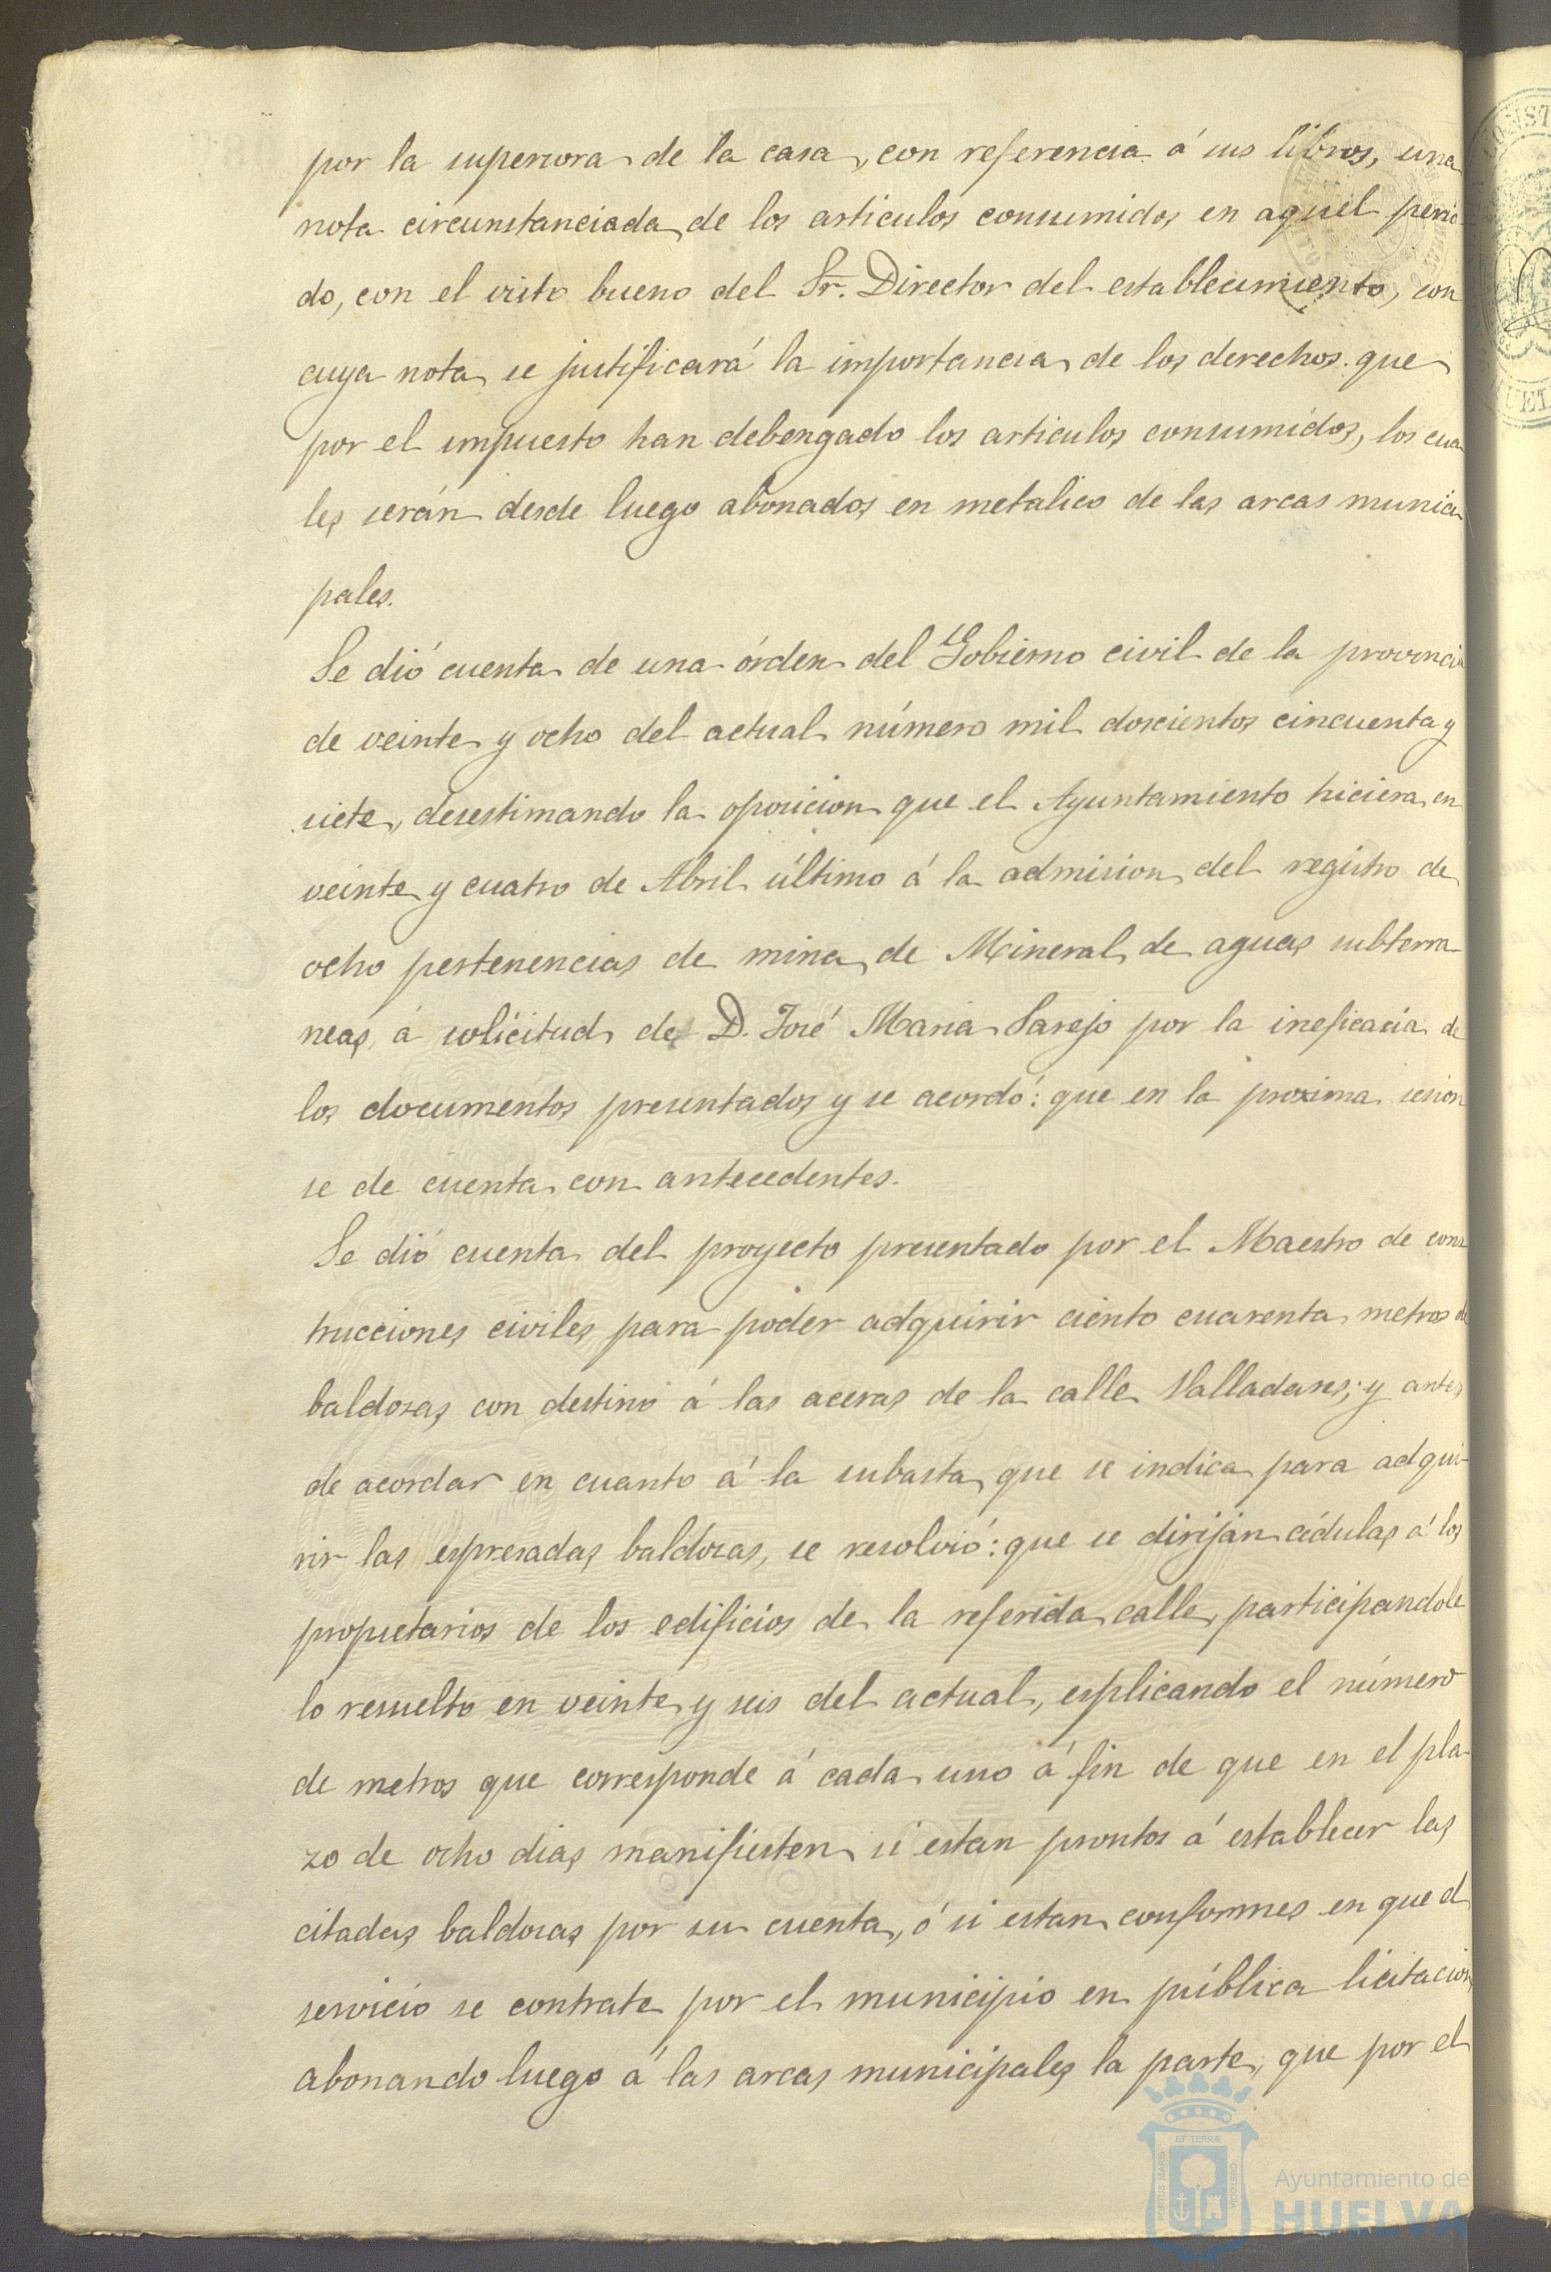 por la superiora de la casa, con referencia á sus libros, una
nota circunstanciada de los articulos consumidos en aquel perio
do, con el visto bueno del Sr. Director del establecimiento, con
cuya nota se justificará la importancia de los derechos que
por el impuesto han debengado los articulos consumidos, los cua
les serán desde luego abonados en metalico de las arcas munici
pales.
Se dió cuenta de una órden del Gobierno civil de la provincia
de veinte y ocho del actual número mil doscientos cincuenta y
siete, desestimando la oposicion que el Ayuntamiento hiciera en
veinte y cuatro de Abril último á la admision del registro de
ocho pertenencias de mina de Mineral de aguas subterra
neas, á solicitud de D. José Maria Parejo por la ineficacia de
los documentos presentados y se acordó: que en la proxima sesion
se de cuenta con antecedentes.
Se dió cuenta del proyecto presentado por el Maestro de cons
trucciones civiles para poder adquirir ciento cuarenta metros de
baldosas con destino á las aceras de la calle Valladares; y antes
de acordar en cuanto á la subasta que se indica para adqui-
rir las espresadas baldosas, se resolvió: que se dirijan cédulas á los
propietarios de los edificios de la referida calle, participandole
lo resuelto en veinte y seis del actual, esplicando el número
de metros que corresponde á cada uno á fin de que en el pla-
zo de ocho dias manifiesten si estan prontos á establecer las
citadas baldosas por su cuenta, ó si estan conformes en que el
servicio se contrate por el municipio en pública licitacion
abonando luego á las arcas municipales la parte, que por el
Ayuntamiento de
HUELVA